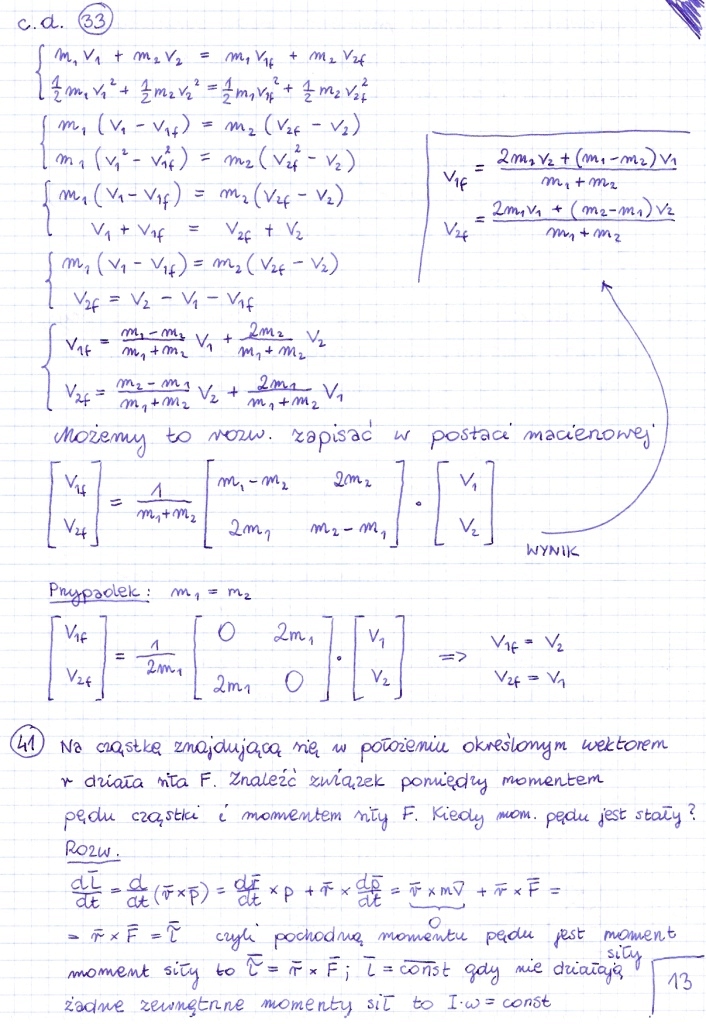 c.d. 33
m₁V₁ + m₂V₂ = m₁V₁f + m₂V₂f
½m₁V₁² + ½m₂V₂² = ½m₁V₁f² + ½m₂V₂f²
m₁(V₁ - V₁f) = m₂(V₂f - V₂)
m₁(V₁² - V₁f²) = m₂(V₂f² - V₂)
m₁(V₁ - V₁f) = m₂(V₂f - V₂)
V₁ + V₁f = V₂f + V₂
m₁(V₁ - V₁f) = m₂(V₂f - V₂)
V₂f = V₂ - V₁ - V₁f
V₁f = (m₁ - m₂)/(m₁ + m₂) V₁ + 2m₂/(m₁ + m₂) V₂
V₂f = (m₂ - m₁)/(m₁ + m₂) V₂ + 2m₁/(m₁ + m₂) V₁
V₁f = (2m₂V₂ + (m₁ - m₂)V₁)/(m₁ + m₂)
V₂f = (2m₁V₁ + (m₂ - m₁)V₂)/(m₁ + m₂)
Możemy to rozw. zapisać w postaci macierzowej
[V₁f; V₂f] = 1/(m₁ + m₂) [m₁ - m₂  2m₂; 2m₁  m₂ - m₁] · [V₁; V₂]
WYNIK
Przypadek: m₁ = m₂
[V₁f; V₂f] = 1/2m₁ [0  2m₁; 2m₁  0] · [V₁; V₂] => V₁f = V₂
V₂f = V₁
41 Na cząstkę znajdującą się w położeniu określonym wektorem
r działa siła F. Znaleźć związek pomiędzy momentem
pędu cząstki i momentem siły F. Kiedy mom. pędu jest stały?
Rozw.
dL̄/dt = d/dt (r̄ × p̄) = dr̄/dt × p + r̄ × dp̄/dt = v̄ × mv̄ + r̄ × F̄ =
0
= r̄ × F̄ = τ̄ czyli pochodną momentu pędu jest moment
siły
moment siły to τ̄ = r̄ × F̄; L̄ = const gdy nie działają
żadne zewnętrzne momenty sił to I·ω = const
13